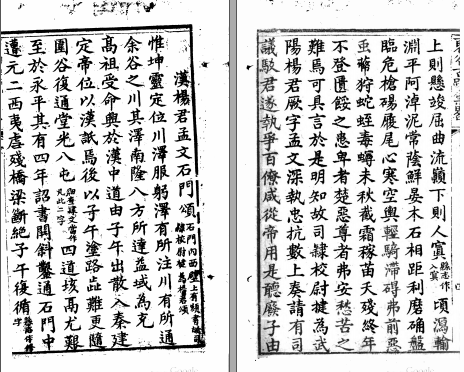 漢楊君孟文石門頌
惟坤靈定位川澤股躬澤有所注川有所通
余谷之川其澤南隆八方所達益域為充
高祖受命興於漢中道由子午出散入秦建
定帝位以漢詆焉後以子午塗路歮難更隨
圍谷復通堂光 四道垓鬲尤艱
至於永平其有四年詔書開斜鑿通石門中
遭元二西夷虐殘橋梁斷絕子午復循
上則懸峻屈曲流顛下則入冥 頃瀉輸
淵平阿淖泥常蔭鮮晏木石相距利磨确盤
臨危槍碭履尾心寒空輿輕騎滯碍弗前惡
虫蔽狩蛇蛭毒蟃未秋截霜稼苗夭殘終年
不登匱餒之患卑者楚惡尊者弗安愁苦之
難焉可具言於是明知故司隸校尉楗為武
陽楊君厥字孟文深執忠抗數上奏請有司
議駮君遂執爭百僚咸從帝用是聽廢子由